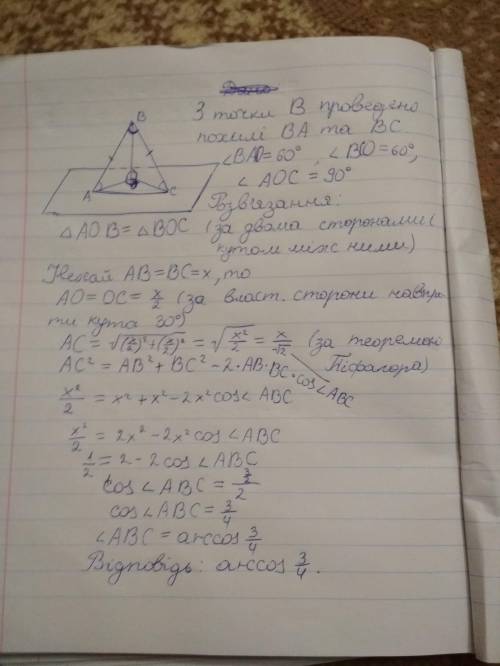 З точки B проведено
похилі BA та BC.
∠BAO=60°, ∠BCO=60°,
∠AOC = 90°
B
O
A
C
Розв'язання:
△AOB = △BOC (за двома сторонами і
кутом між ними)
Нехай AB=BC=x, то
AO=OC= x/2 (за власт. сторони навпро-
ти кута 30°)
AC = √((x/2)²+(x/2)²) = √(x²/2) = x/√2 (за теоремою
Піфагора)
AC² = AB² + BC² - 2·AB·BC·cos∠ABC
x²/2 = x² + x² - 2x²cos∠ABC
x²/2 = 2x² - 2x²cos∠ABC
1/2 = 2 - 2cos∠ABC
cos∠ABC = (3/2)/2
cos∠ABC = 3/4
∠ABC = arccos 3/4
Відповідь: arccos 3/4.